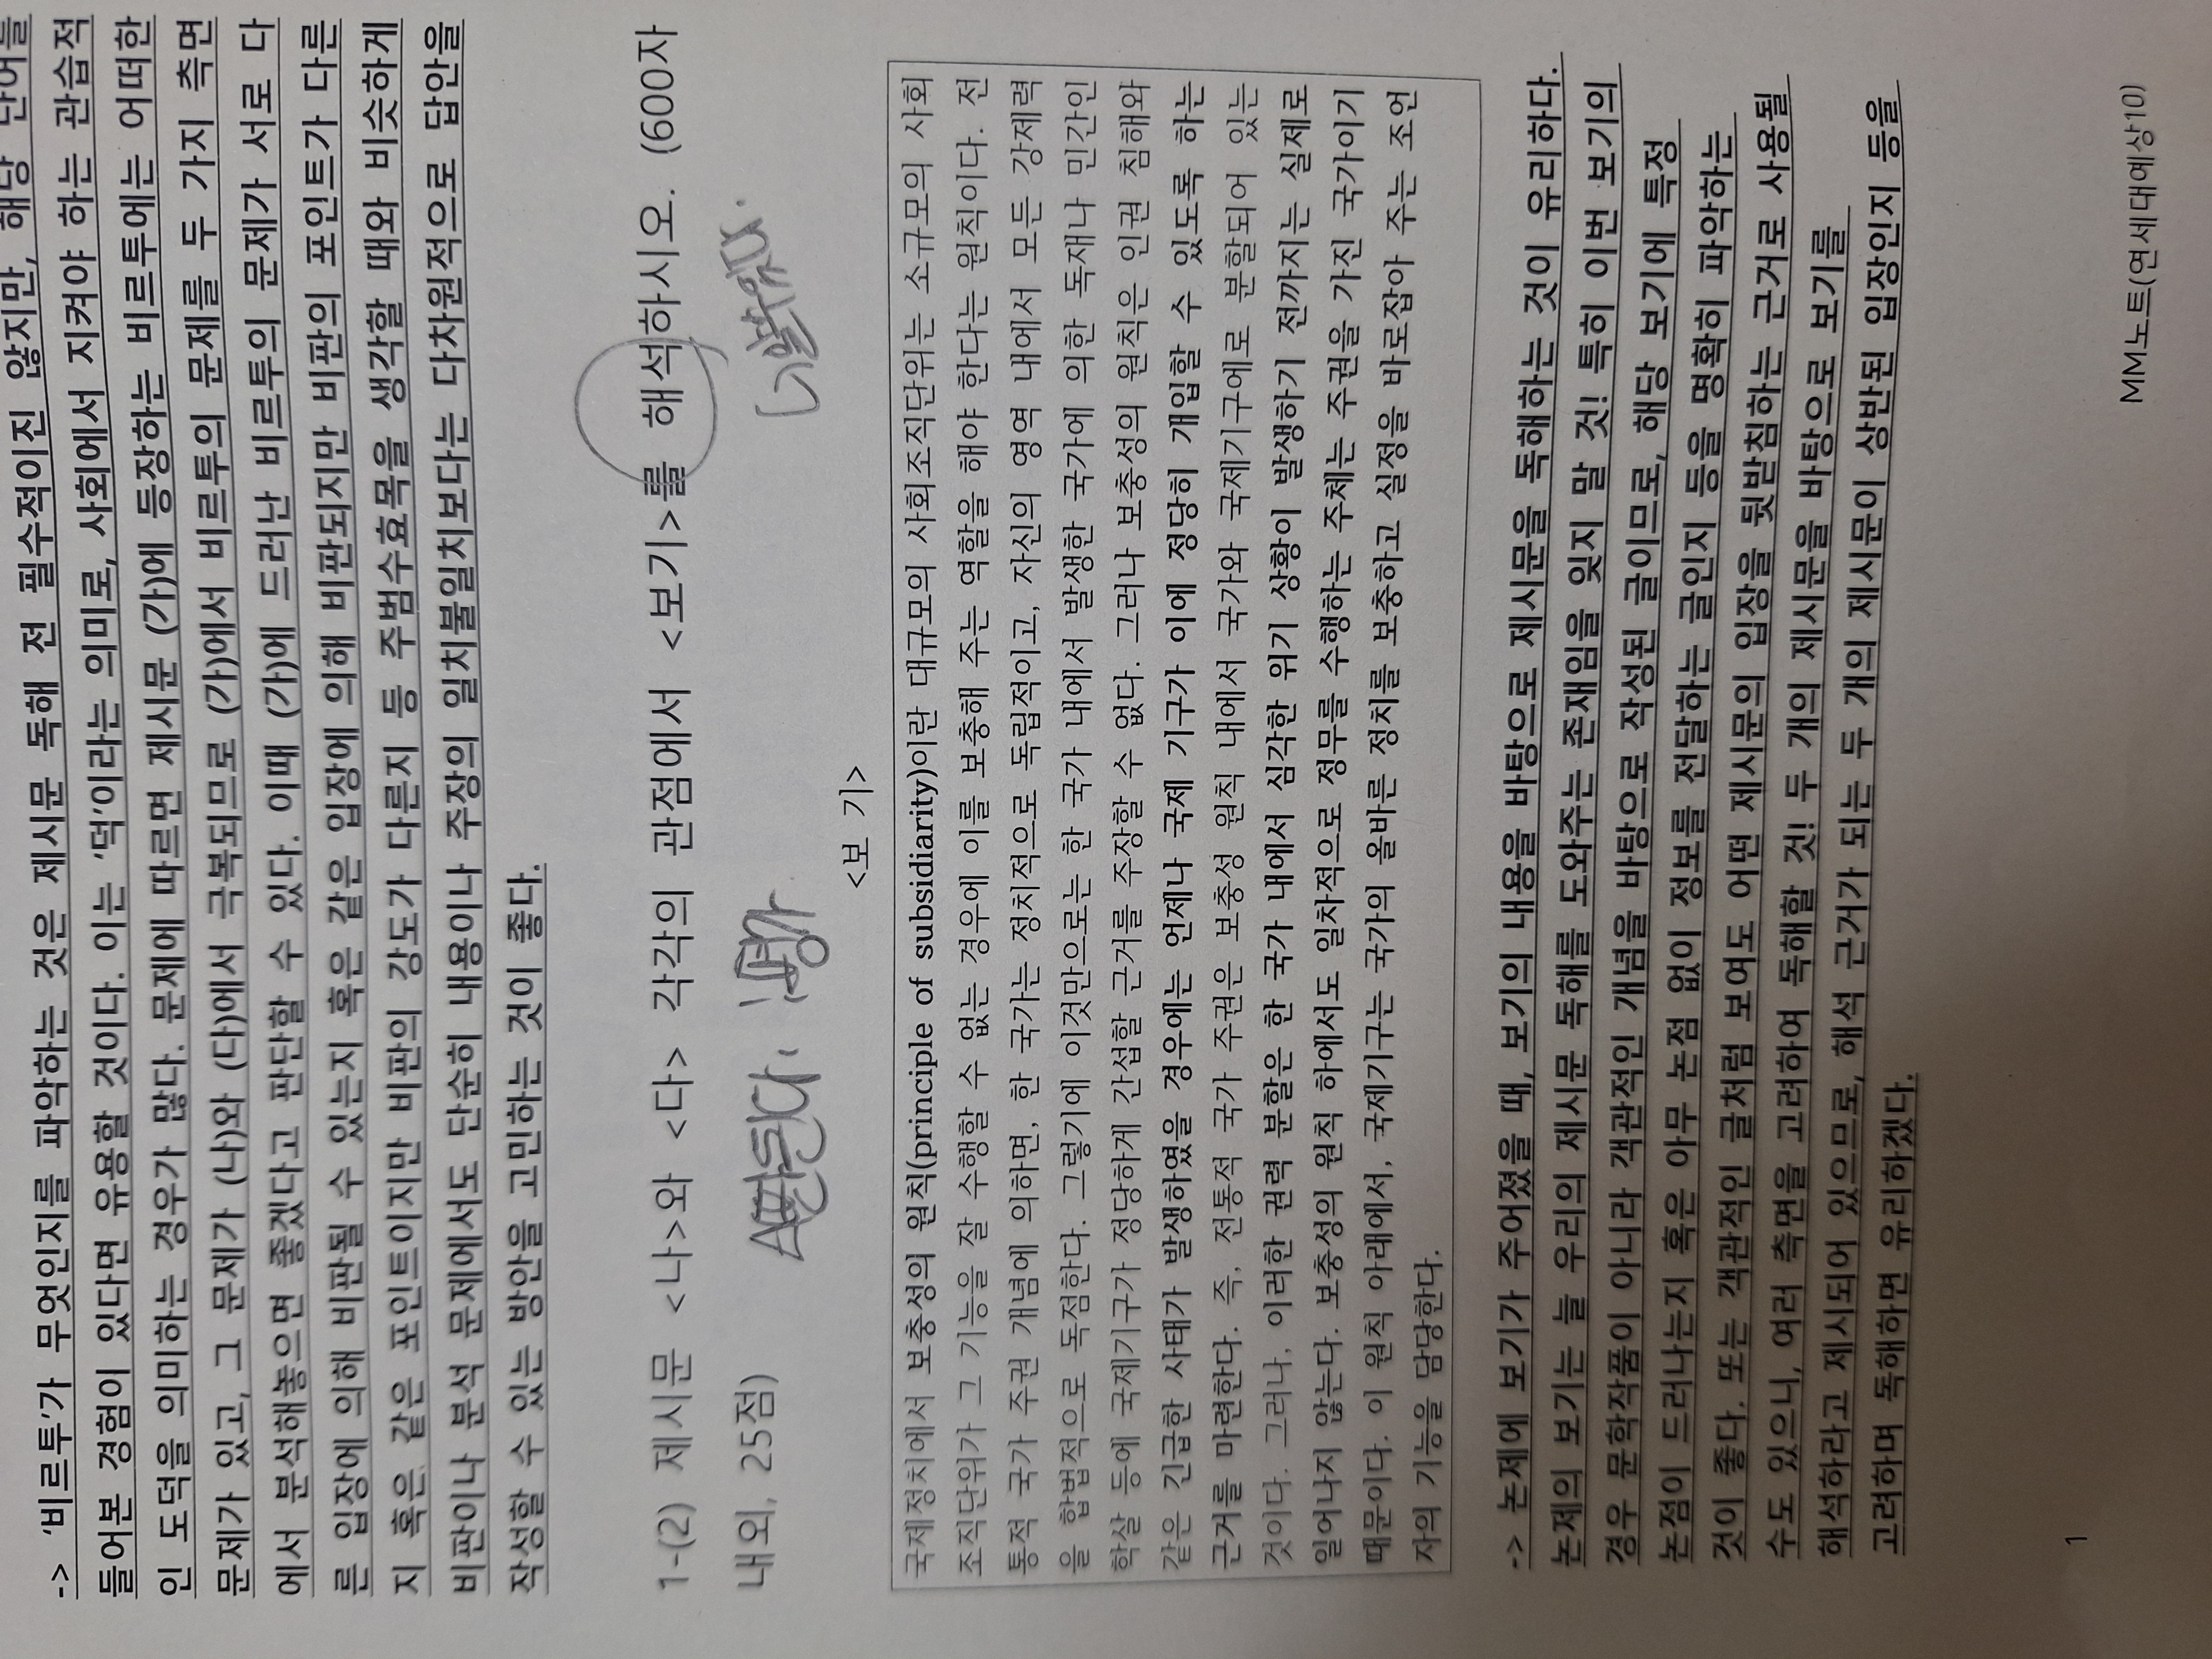 -> '비르투'가 무엇인지를 파악하는 것은 제시문 독해 전 필수적이진 않지만, 해당 단어를
들어본 경험이 있다면 유용할 것이다. 이는 '덕'이라는 의미로, 사회에서 지켜야 하는 관습적
인 도덕을 의미하는 경우가 많다. 문제에 따르면 제시문 (가)에 등장하는 비르투에는 어떠한
문제가 있고, 그 문제가 (나)와 (다)에서 극복되므로 (가)에서 비르투의 문제를 두 가지 측면
에서 분석해놓으면 좋겠다고 판단할 수 있다. 이때 (가)에 드러난 비르투의 문제가 서로 다
른 입장에 의해 비판될 수 있는지 혹은 같은 입장에 의해 비판되지만 비판의 포인트가 다른
지 혹은 같은 포인트이지만 비판의 강도가 다른지 등 주범수효목을 생각할 때와 비슷하게
비판이나 분석 문제에서도 단순히 내용이나 주장의 일치불일치보다는 다차원적으로 답안을
작성할 수 있는 방안을 고민하는 것이 좋다.
1-(2) 제시문 <나>와 <다> 각각의 관점에서 <보기>를 해석하시오. (600자
내외, 25점)
<보 기>
국제정치에서 보충성의 원칙(principle of subsidiarity)이란 대규모의 사회조직단위는 소규모의 사회
조직단위가 그 기능을 잘 수행할 수 없는 경우에 이를 보충해 주는 역할을 해야 한다는 원칙이다. 전
통적 국가 주권 개념에 의하면, 한 국가는 정치적으로 독립적이고, 자신의 영역 내에서 모든 강제력
을 합법적으로 독점한다. 그렇기에 이것만으로는 한 국가 내에서 발생한 국가에 의한 독재나 민간인
학살 등에 국제기구가 정당하게 간섭할 근거를 주장할 수 없다. 그러나 보충성의 원칙은 인권 침해와
같은 긴급한 사태가 발생하였을 경우에는 언제나 국제 기구가 이에 정당히 개입할 수 있도록 하는
근거를 마련한다. 즉, 전통적 국가 주권은 보충성 원칙 내에서 국가와 국제기구에로 분할되어 있는
것이다. 그러나, 이러한 권력 분할은 한 국가 내에서 심각한 위기 상황이 발생하기 전까지는 실제로
일어나지 않는다. 보충성의 원칙 하에서도 일차적으로 정무를 수행하는 주체는 주권을 가진 국가이기
때문이다. 이 원칙 아래에서, 국제기구는 국가의 올바른 정치를 보충하고 실정을 바로잡아 주는 조언
자의 기능을 담당한다.
-> 논제에 보기가 주어졌을 때, 보기의 내용을 바탕으로 제시문을 독해하는 것이 유리하다.
논제의 보기는 늘 우리의 제시문 독해를 도와주는 존재임을 잊지 말 것! 특히 이번 보기의
경우 문학작품이 아니라 객관적인 개념을 바탕으로 작성된 글이므로, 해당 보기에 특정
논점이 드러나는지 혹은 아무 논점 없이 정보를 전달하는 글인지 등을 명확히 파악하는
것이 좋다. 또는 객관적인 글처럼 보여도 어떤 제시문의 입장을 뒷받침하는 근거로 사용될
수도 있으니, 여러 측면을 고려하여 독해할 것! 두 개의 제시문을 바탕으로 보기를
해석하라고 제시되어 있으므로, 해석 근거가 되는 두 개의 제시문이 상반된 입장인지 등을
고려하며 독해하면 유리하겠다.
1
MM노트(연세대예상10)